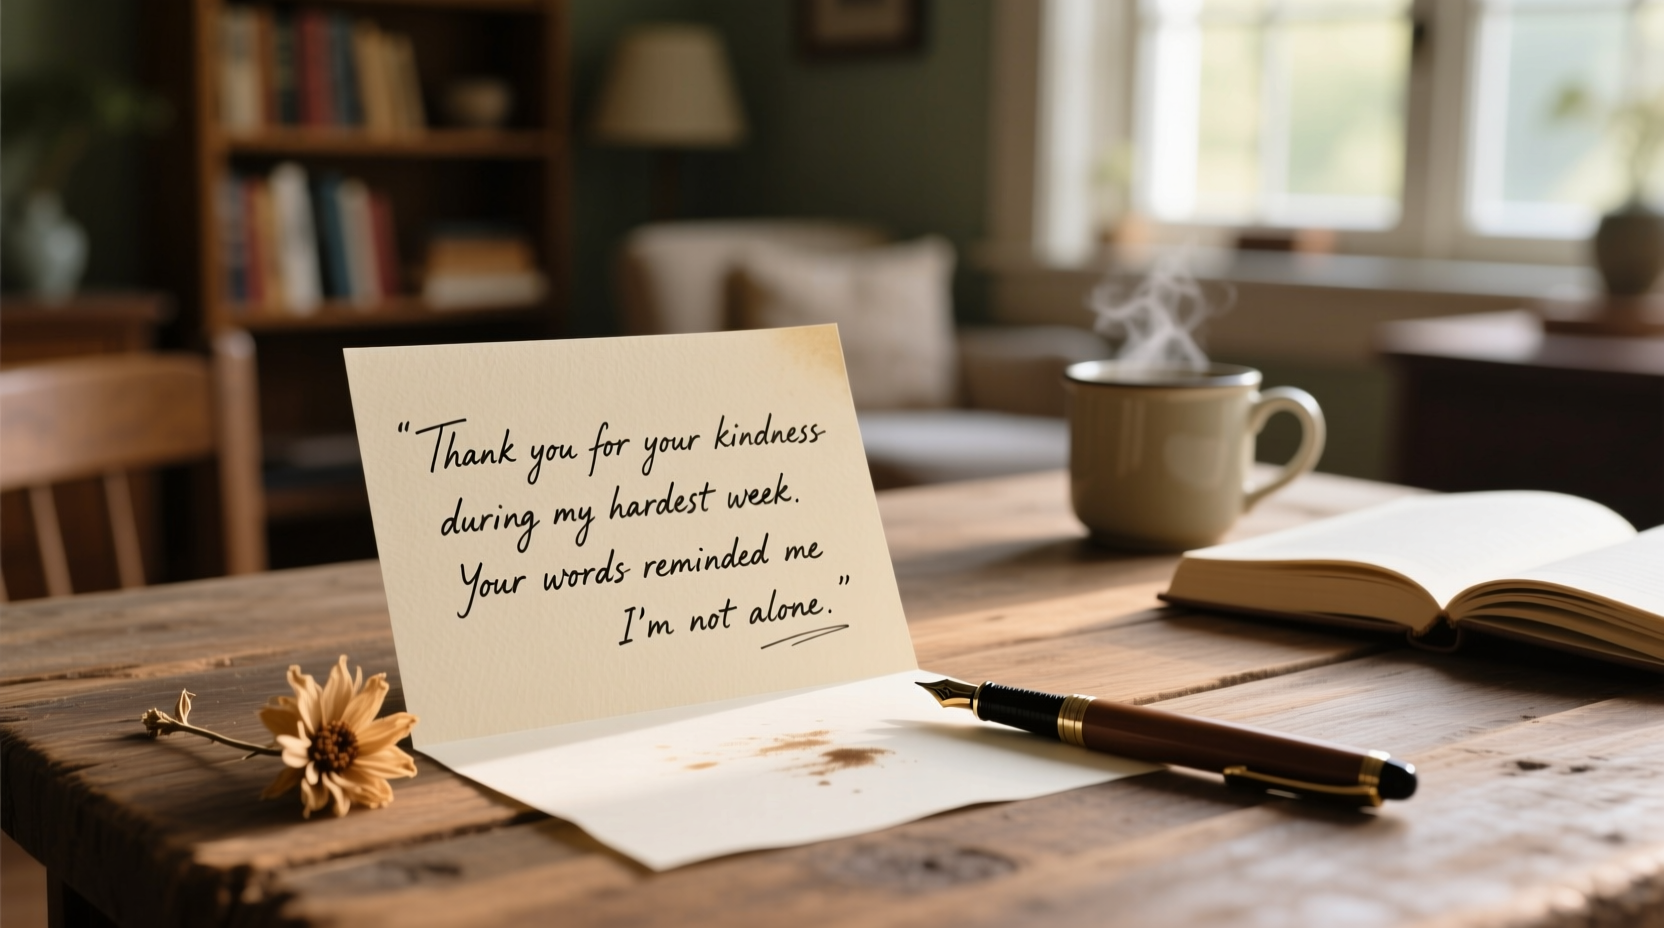 “Thank you for your kindness
during my hardest week.
Your words reminded me
I'm not alone.”